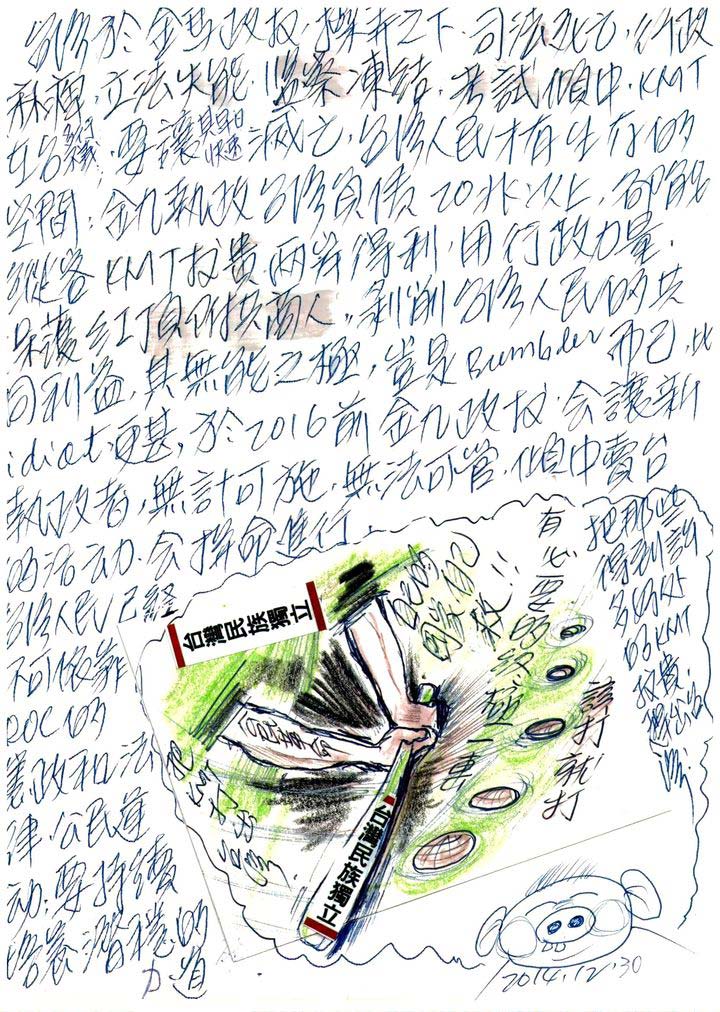 台湾於金馬政权操弄之下司法死亡,行政
麻痺,立法失能,監察凍結,考試傾中,KMT
在台多行不義,要讓其自快速滅亡,台湾人民才有生存的
空間,金九執政台湾負債20兆以上,卻能
縱容KMT权貴兩岸得利,用行政力量,
保護紅頂商人,剝削台湾人民的共
同利益,其無能之極,豈是Bumbler而已,比
idiot更甚,於2016前金九政权,会讓新
執政者,無計可施,無法可管,傾中賣台
的活动,会拼命進行,
台湾人民已經
不可依靠
ROC的
憲政和法
律,公民運
动,要持續
培養潛穩的
力道
台灣民族獨立
台灣民族獨立
我們
國家自己
救!!
有心
一事
該打就打
把那些
得到許
多好处
的KMT
权貴,
趕出台
湾,
2014.12.30